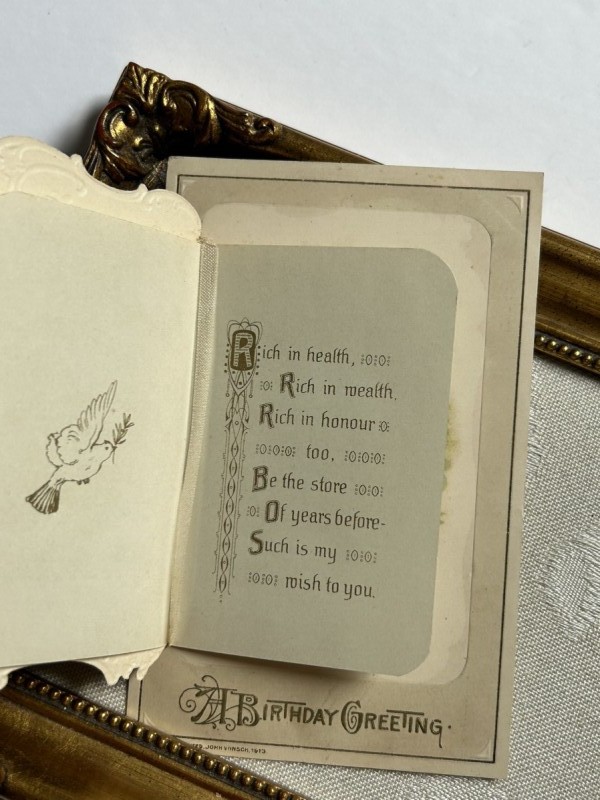 Rich in health,
Rich in wealth.
Rich in honour
too,
Be the store
Of years before-
Such is my
wish to you.
A Birthday Greeting.
JOHN WINSCH, 1913